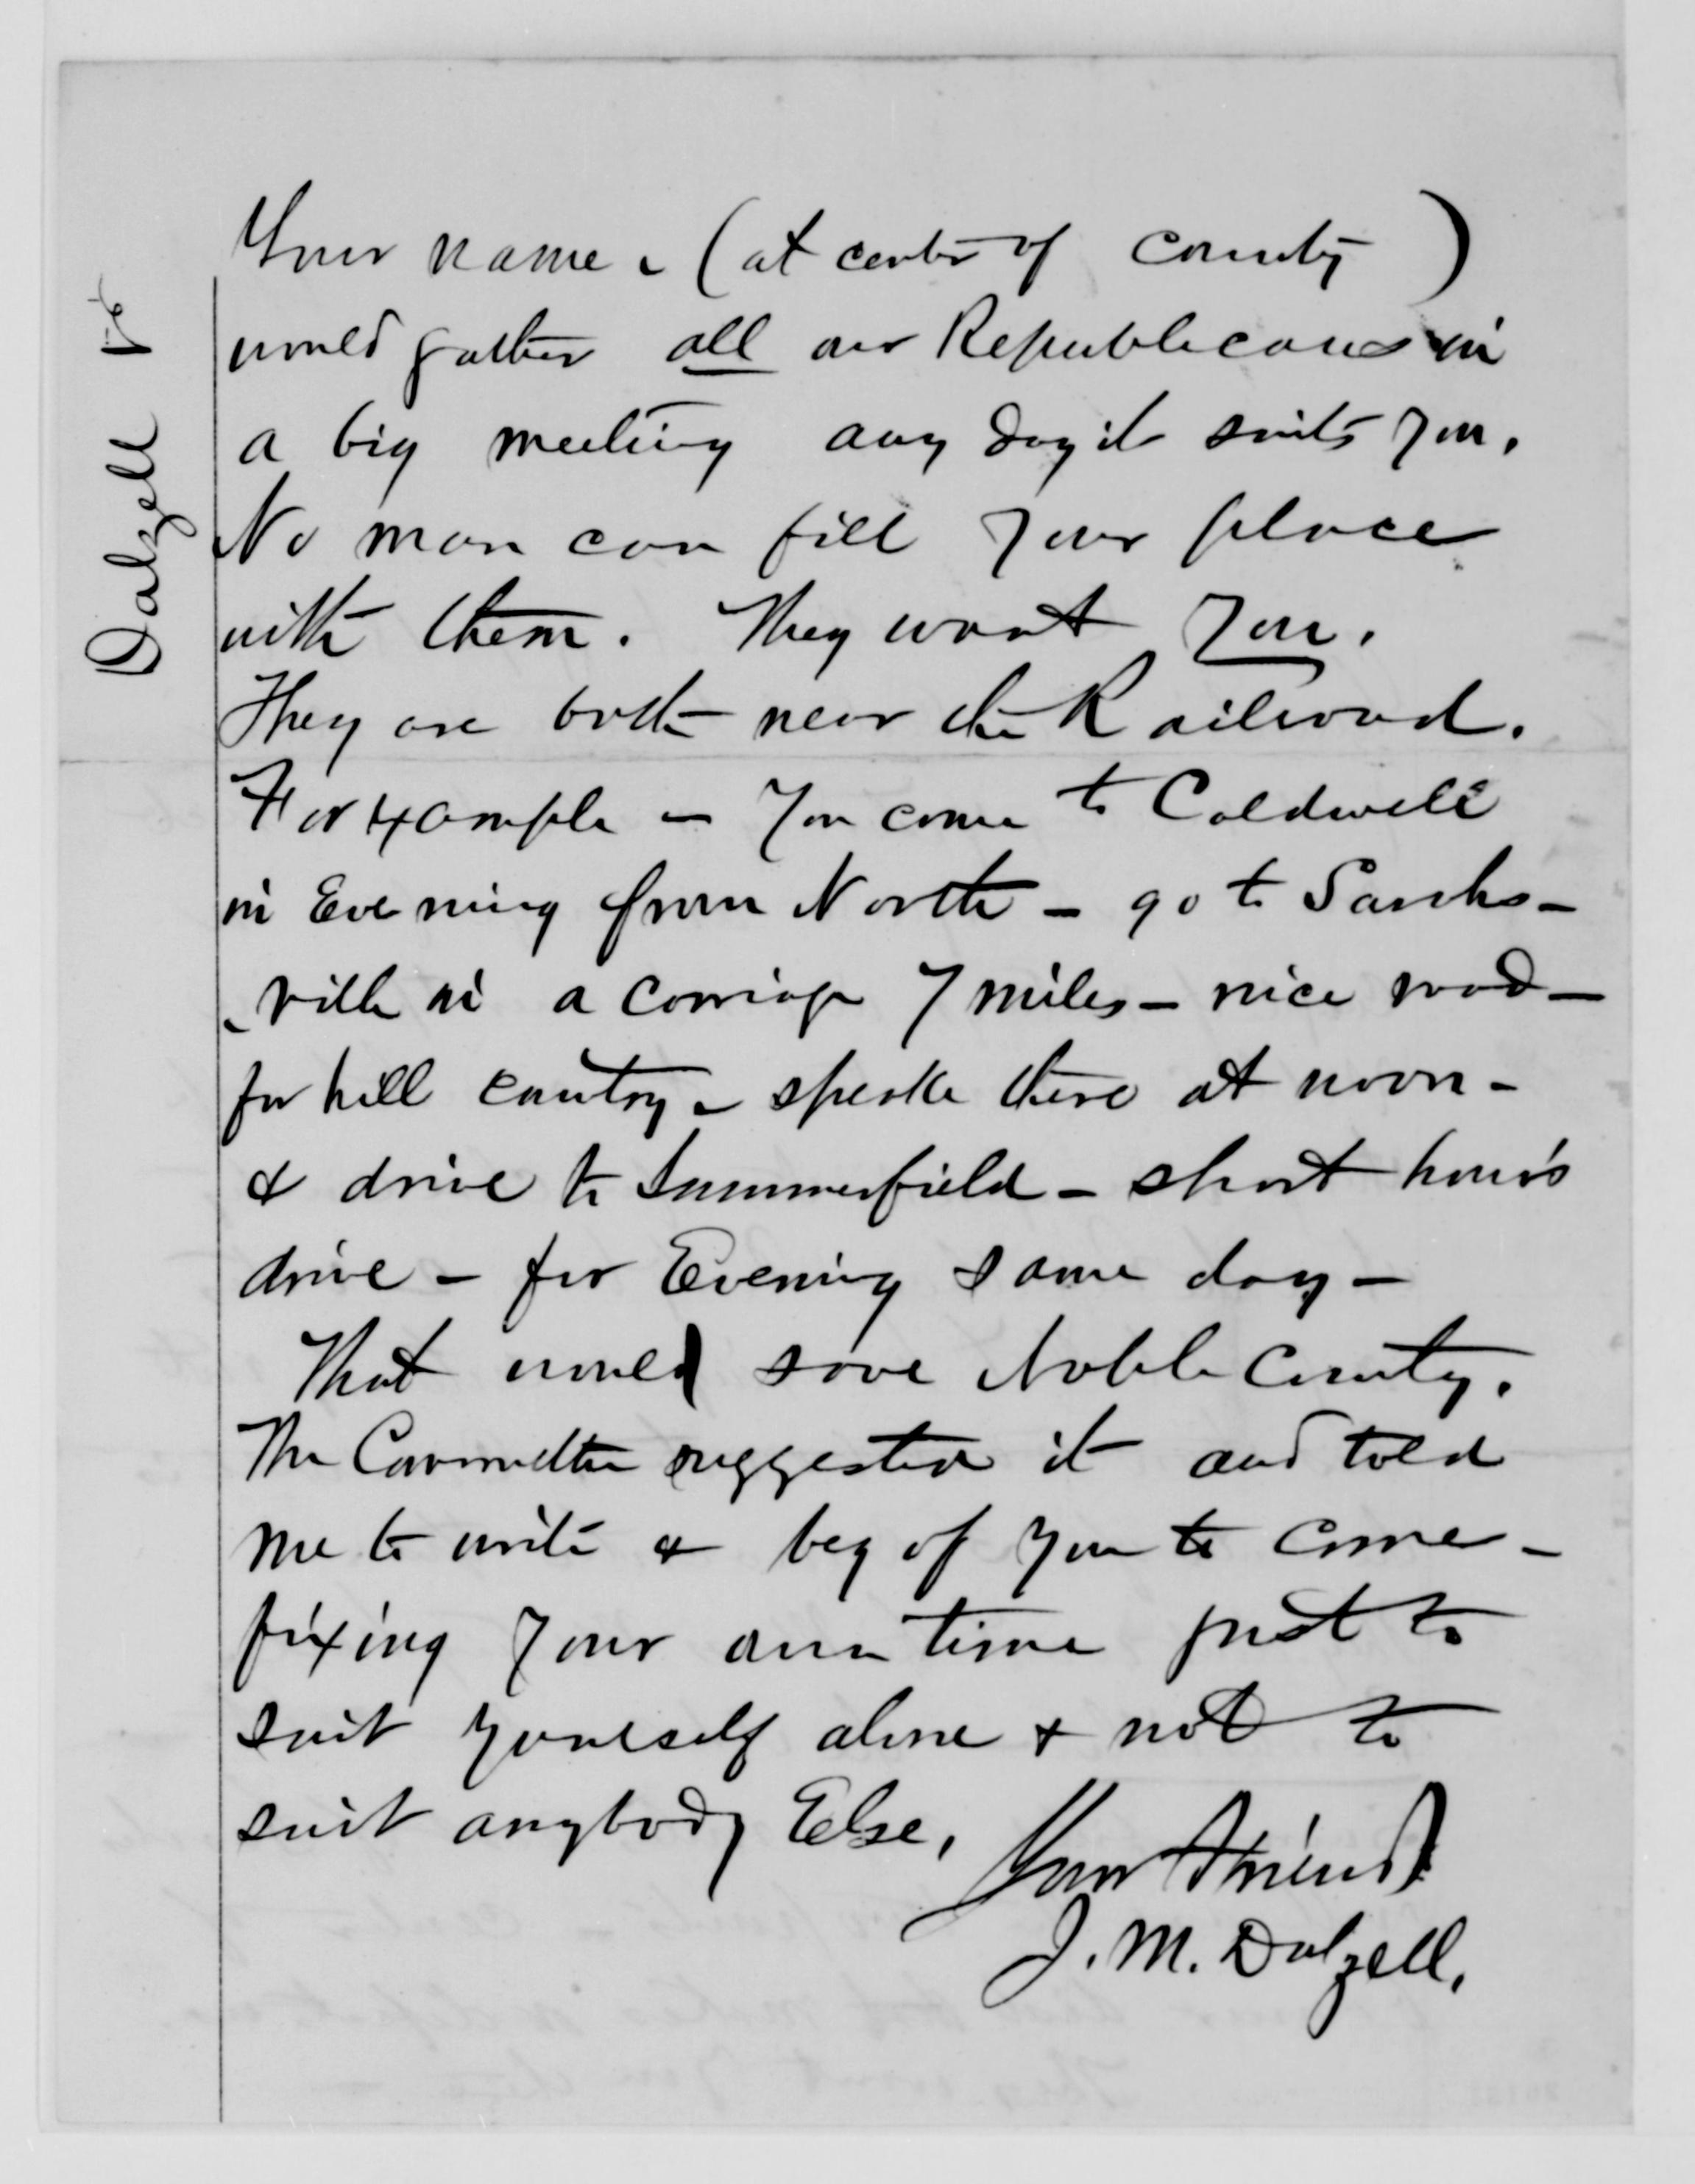 Your name - (at center of County)
would gather all our Republicans in
a big meeting any day it suits you.
No man can fill your place
with them. They want you.
They are both near the Railroad.
For Example - You come to Caldwell
in Evening from North - go to Sarahs-
-ville in a carriage 7 miles - nice road -
for hill country - speak there at noon -
& drive to Summerfield - short hour's
drive - for Evening same day -
That would save Noble County.
The Committee suggested it and told
me to write & beg of you to come -
fixing your own time just to
suit yourself alone & not to
suit anybody Else,
Your Friend
J. M. Dalzell.
Dalzell